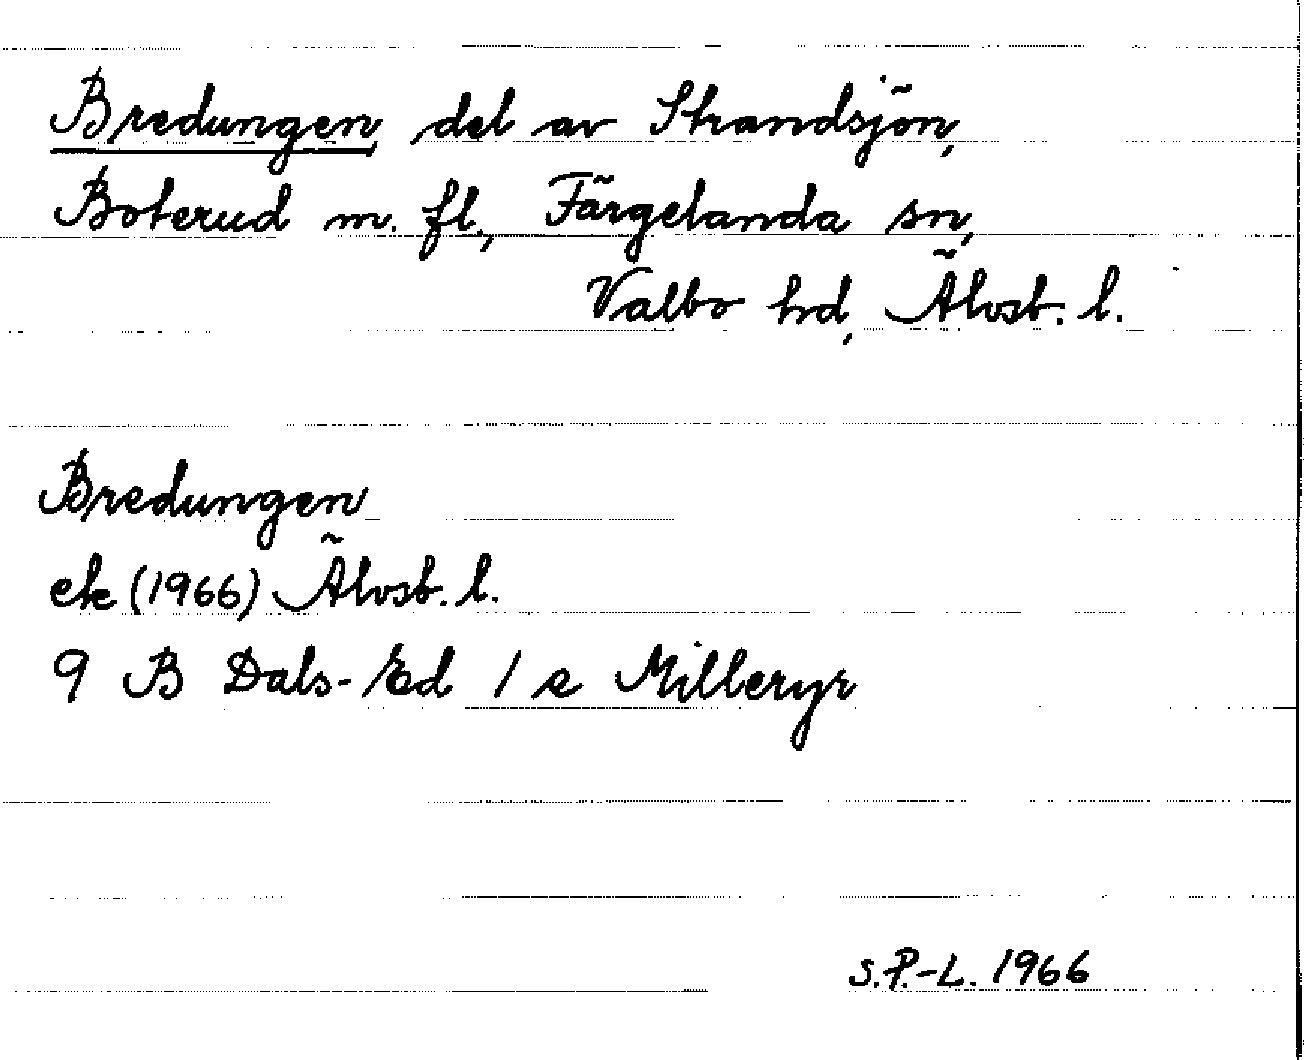 Bredungen, del av Strandsjön,
Boterud m. fl., Färgelanda sn,
Valbo hd, Älvsb. l.
Bredungen
ek (1966) Älvsb. l.
9 B Dals-Ed 1 e Milleryr
S.P.-L. 1966